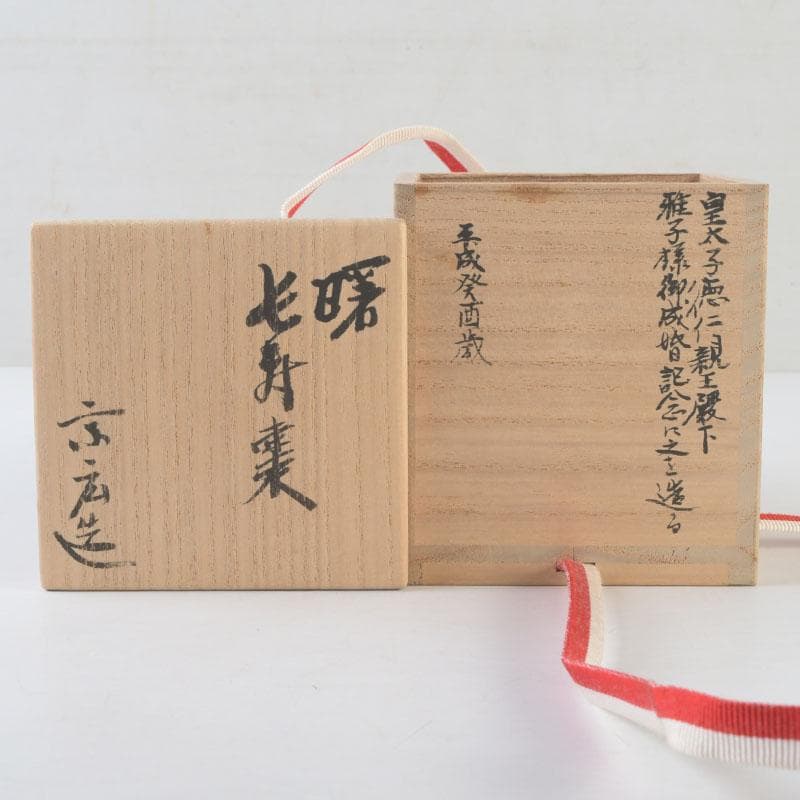 曙
七寿棗
宗広造
皇太子徳仁親王殿下
雅子様御成婚記念に之を造る
平成癸酉歳